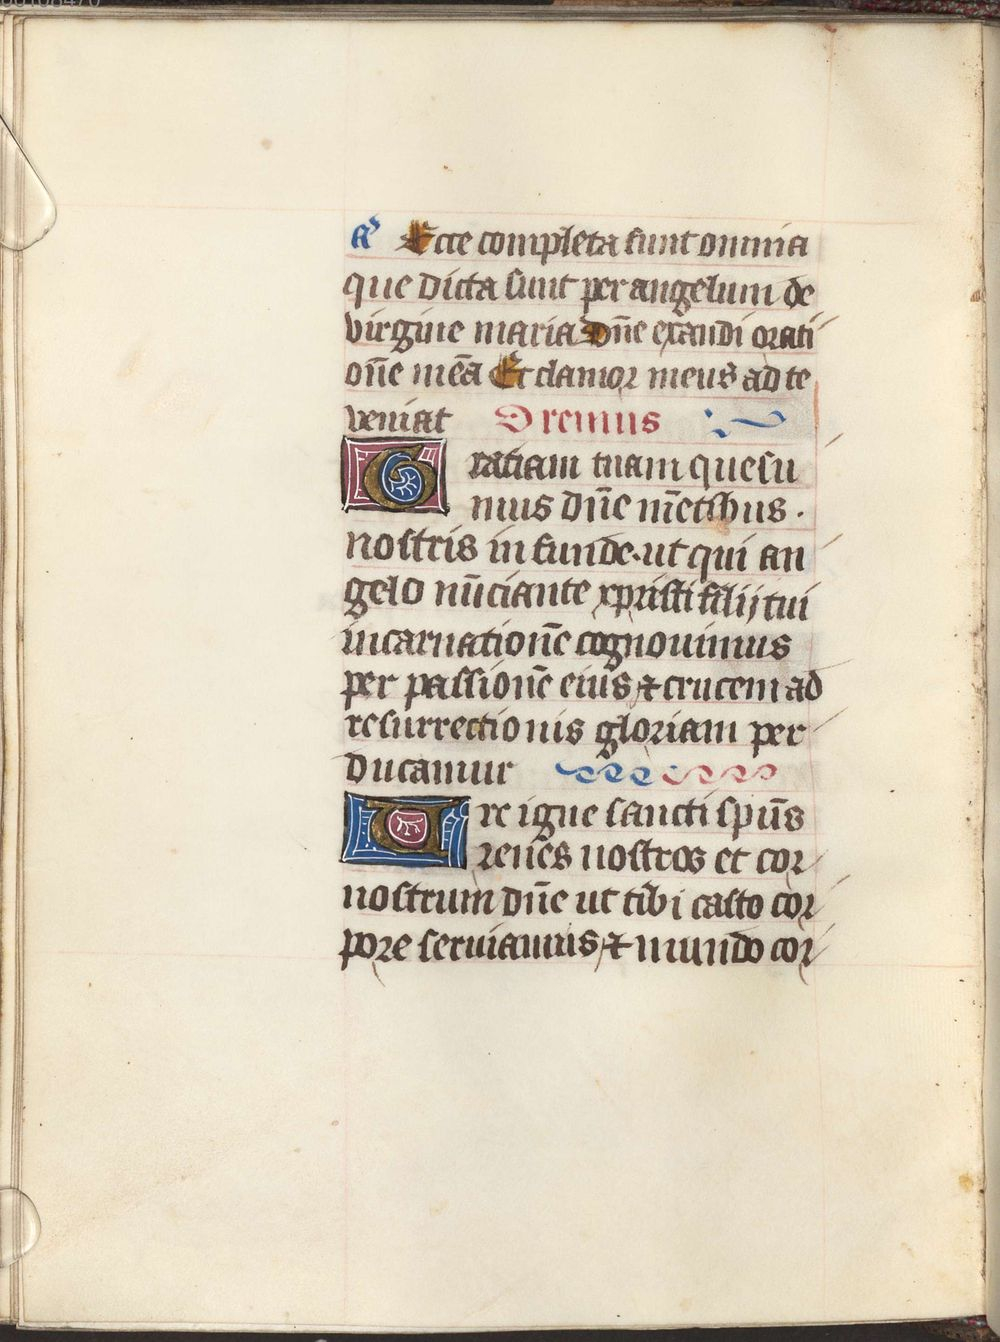 a͛ Ecce completa sunt omnia
que dicta sunt per angelum de
virgine maria Dn̄e exaudi orati
on̄e meā Et clamor meus ad te
veniat Oremus
Gratiam tuam quesu
mus dn̄e m̄etibus ·
nostris in funde · ut qui an
gelo nūciante xpristi filij tui
incarnation̄e cognouimus
per passion̄e eius ⁊ crucem ad
resurrectionis gloriam per
ducamur
Ure igne sancti spūs
renes nostros et cor
nostrum dn̄e ut tibi casto cor
pore seruiamus ⁊ mundo cor